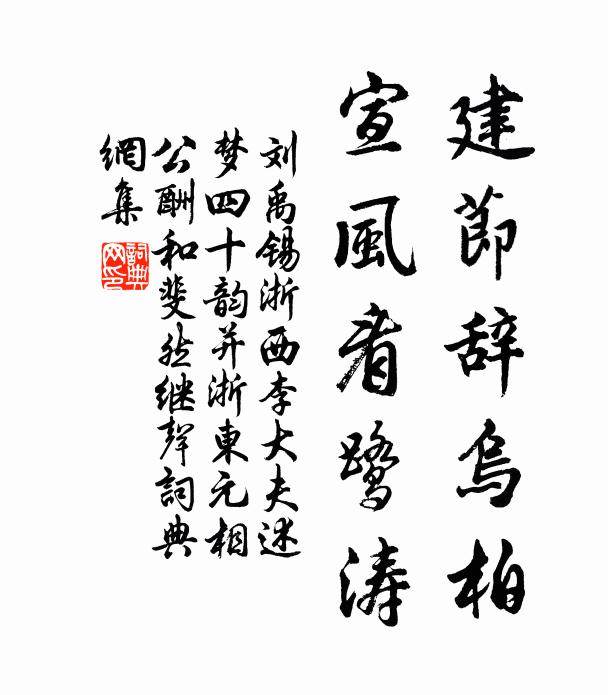 建節辞烏柏
宣風看鷺涛
刘禹锡浙西李大夫述
梦四十韵并浙東元相
公酬和斐然继聲詞典
網集
詞典網印